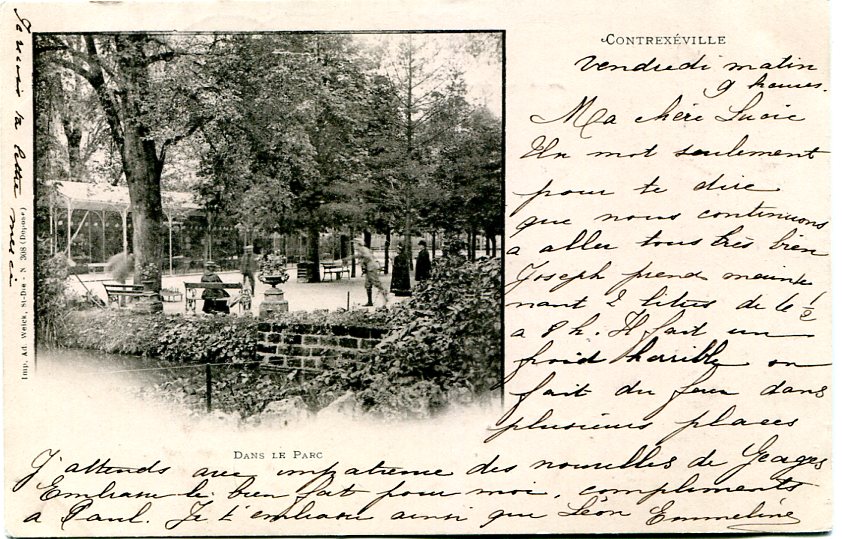 CONTREXÉVILLE
vendredi matin
9 heures.
Ma chère Lucie
Un mot seulement
pour te dire
que nous continuons
a aller tous très bien
Joseph prend mainte
nant 2 litres de 6 ½
a 8 h. Il fait un
froid horrible on
fait du feu dans
plusieurs places
DANS LE PARC
J'attends avec impatience des nouvelles de Georges
Embrasse le bien fat pour moi. compliments
a Paul. Je t'embrasse ainsi que Léon Emmeline
Je reçois ta lettre merci
Imp. Ad. Weick, St-Dié - N. 308 (Déposé)